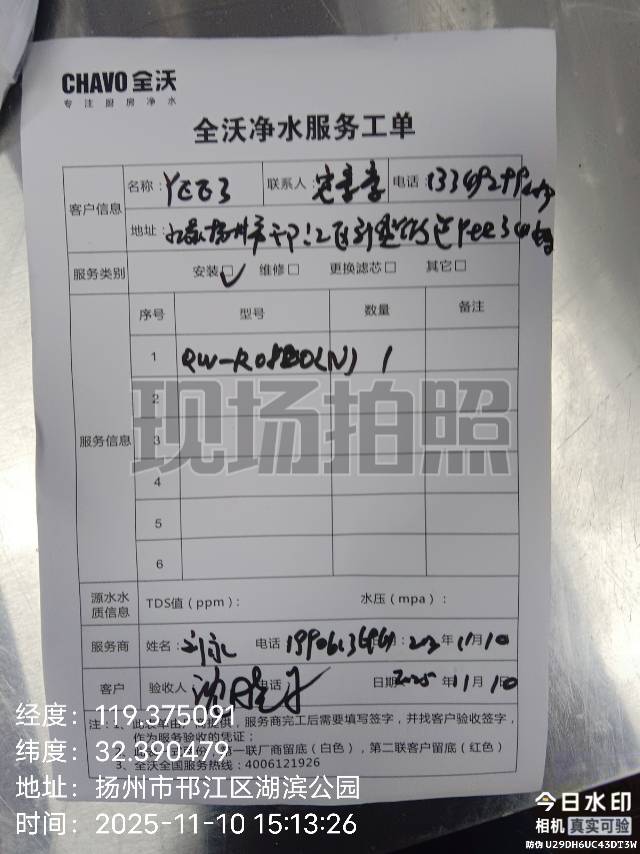 CHAVO 全沃
专注厨房净水
全沃净水服务工单
客户信息
名称： YEE3 联系人： 电话：
地址：
服务类别 安装☑ 维修□ 更换滤芯□ 其它□
服务信息
序号 型号 数量 备注
1 1
2
3
4
5
6
现场拍照
源水水质信息 TDS值（ppm）： 水压（mpa）：
服务商 姓名： 电话 年 11月10
客户 验收人 电话 日期 2025年11月10
服务商完工后需要填写签字，并找客户验收签字，
作为服务验收的凭证；
一联厂商留底（白色），第二联客户留底（红色）
3、全沃全国服务热线：4006121926
经度：119.375091
纬度：32.390479
地址：扬州市邗江区湖滨公园
时间：2025-11-10 15:13:26
今日水印
相机 真实可验
防伪 U29DH6UC43DT3W